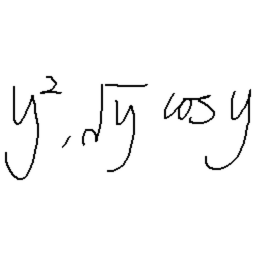 y², √y cos y